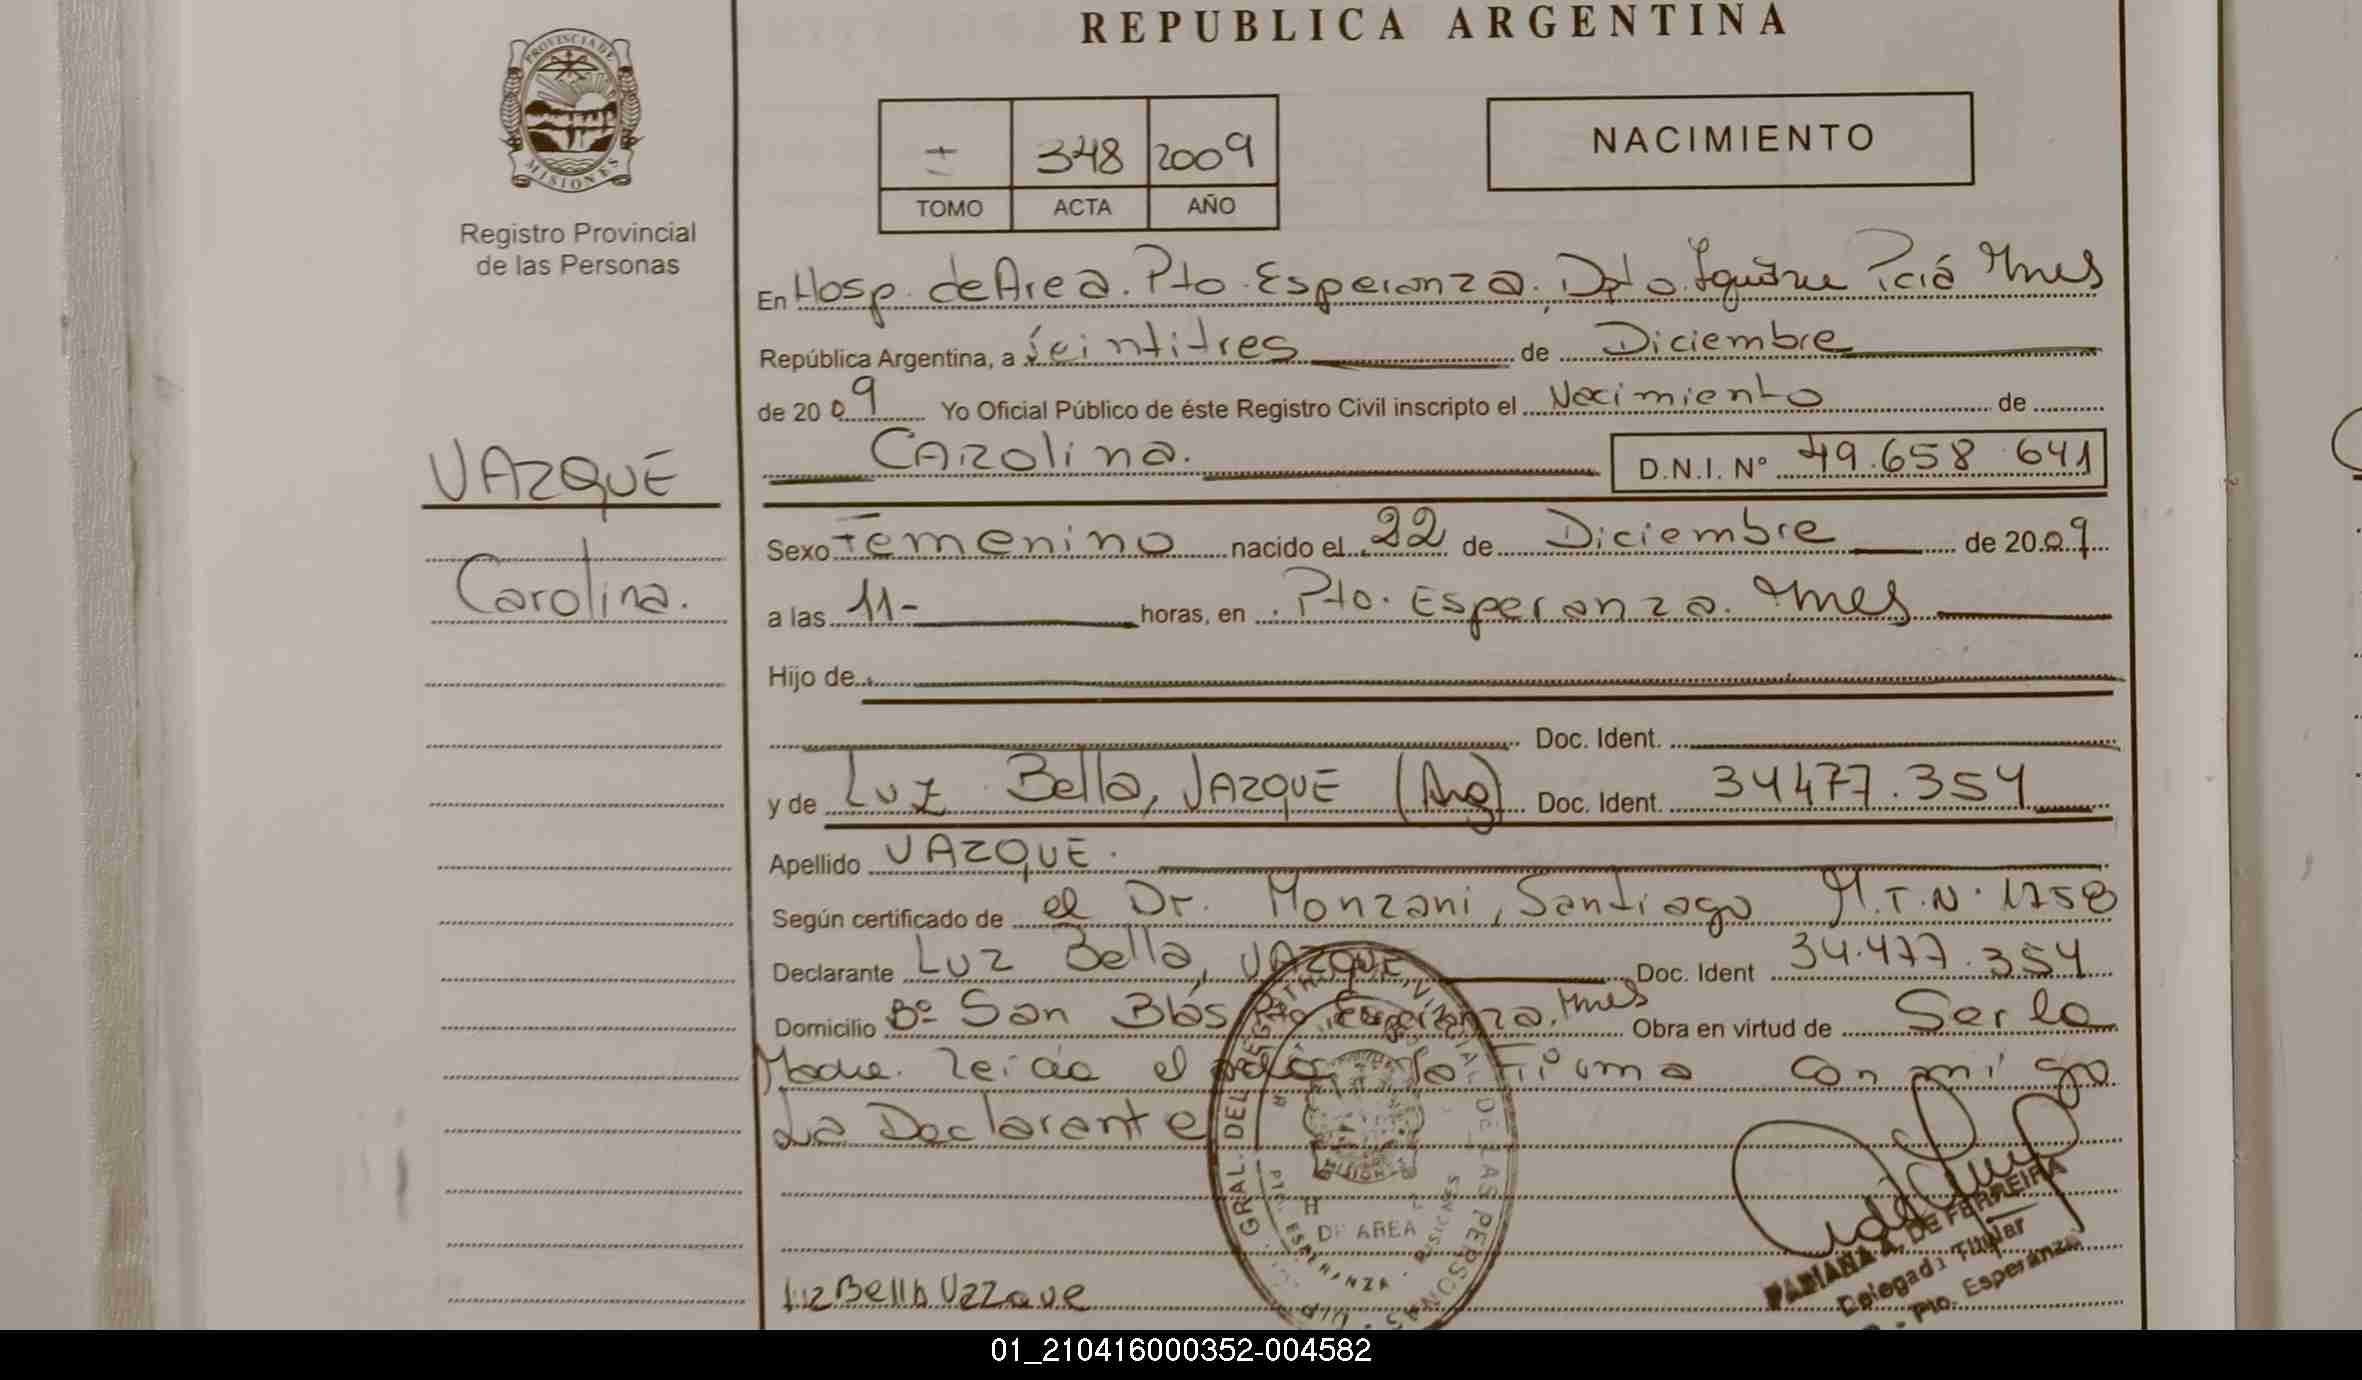 REPUBLICA ARGENTINA
PROVINCIA DE
MISIONES
Registro Provincial
de las Personas
348 2009
TOMO ACTA AÑO
NACIMIENTO
En Hosp. de Area. Pto. Esperanza. Dpto. Iguazu Pcia Mnes
República Argentina, a veintitres de Diciembre
de 2009 Yo Oficial Público de éste Registro Civil inscripto el Nacimiento de
Carolina. D.N.I. Nº 49.658 641
VAZQUE
Carolina.
Sexo Femenino nacido el 22 de Diciembre de 2009
a las 11- horas, en Pto. Esperanza. Mnes
Hijo de
Doc. Ident.
y de Luz Bella, VAZQUE (Arg) Doc. Ident. 34477.354
Apellido VAZQUE.
Según certificado de el Dr. Monzani, Santiago M.T.N. 1758
Declarante Luz Bella, VAZQUE Doc. Ident 34.477.354
Domicilio Bº San Blás Pto Esperanza. Mnes Obra en virtud de Ser la
Madre. Leida el acta la Firma conmigo
La Declarante
GRAL. DEL REGISTRO PROVINCIAL DE LAS PERSONAS
DE AREA
PTO. ESPERANZA - MISIONES
Luz Bella Vazque
FABIANA A. DE FERREIRA
Delegada Titular
Pto. Esperanza
01_210416000352-004582